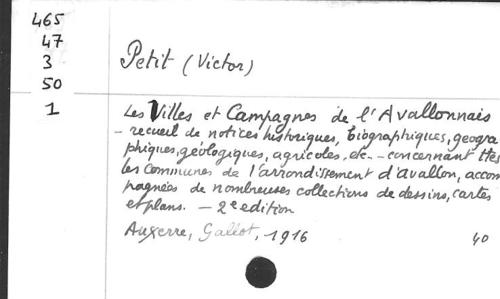 465
47
3
50
1
Petit (Victor)
Les Villes et Campagnes de l'Avallonnais
- recueil de notices historiques, biographiques, geogra
phiques, géologiques, agricoles, etc - concernant ttes
les communes de l'arrondissement d'avallon, accom
pagnées de nombreuses collections de dessins, cartes
et plans. - 2e edition
Auxerre, Gallot, 1916
40